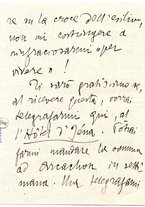 su la croce dell'esilio,
non mi costringere a
rinfrancescarmi per
vivere"!
Ti sarò gratissimo se,
al ricevere questa, vorrai
telegrafarmi qui, al
l'Hôtel d'Jéna. Potrai
farmi mandare la somma
ad Arcachon in setti
mana. Ma telegrafami